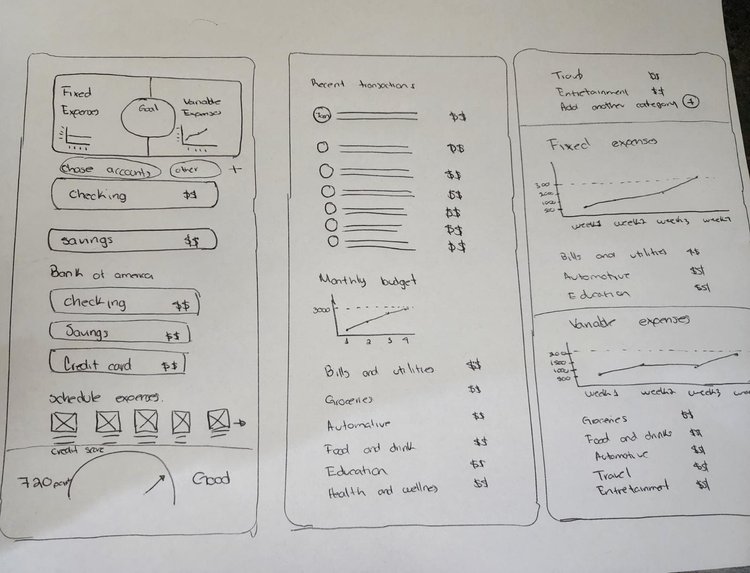 Fixed
Expenses
Goal
Variable
Expenses
chase accounts
other
+
Checking $$
Savings $$
Bank of america
checking $$
Savings $$
Credit card $$
Schedule expenses.
Credit score
720
Good
Recent transactions
$$
$$
$$
$$
$$
$$
$$
Monthly budget
3000
1 2 3 4
Bills and utilities $$
Groceries $$
Automative $$
Food and drink $$
Education $$
Health and wellnes $$
$$
Entretainment $$
Add another category +
Fixed expenses
week1 week2 week3 week4
Bills and utilities $$
Automotive $$
Education $$
Variable expenses
2000
1500
1000
500
week1 week2 week3
Groceries $$
Food and drinks $$
Automotive $$
Travel $$
Entretainment $$